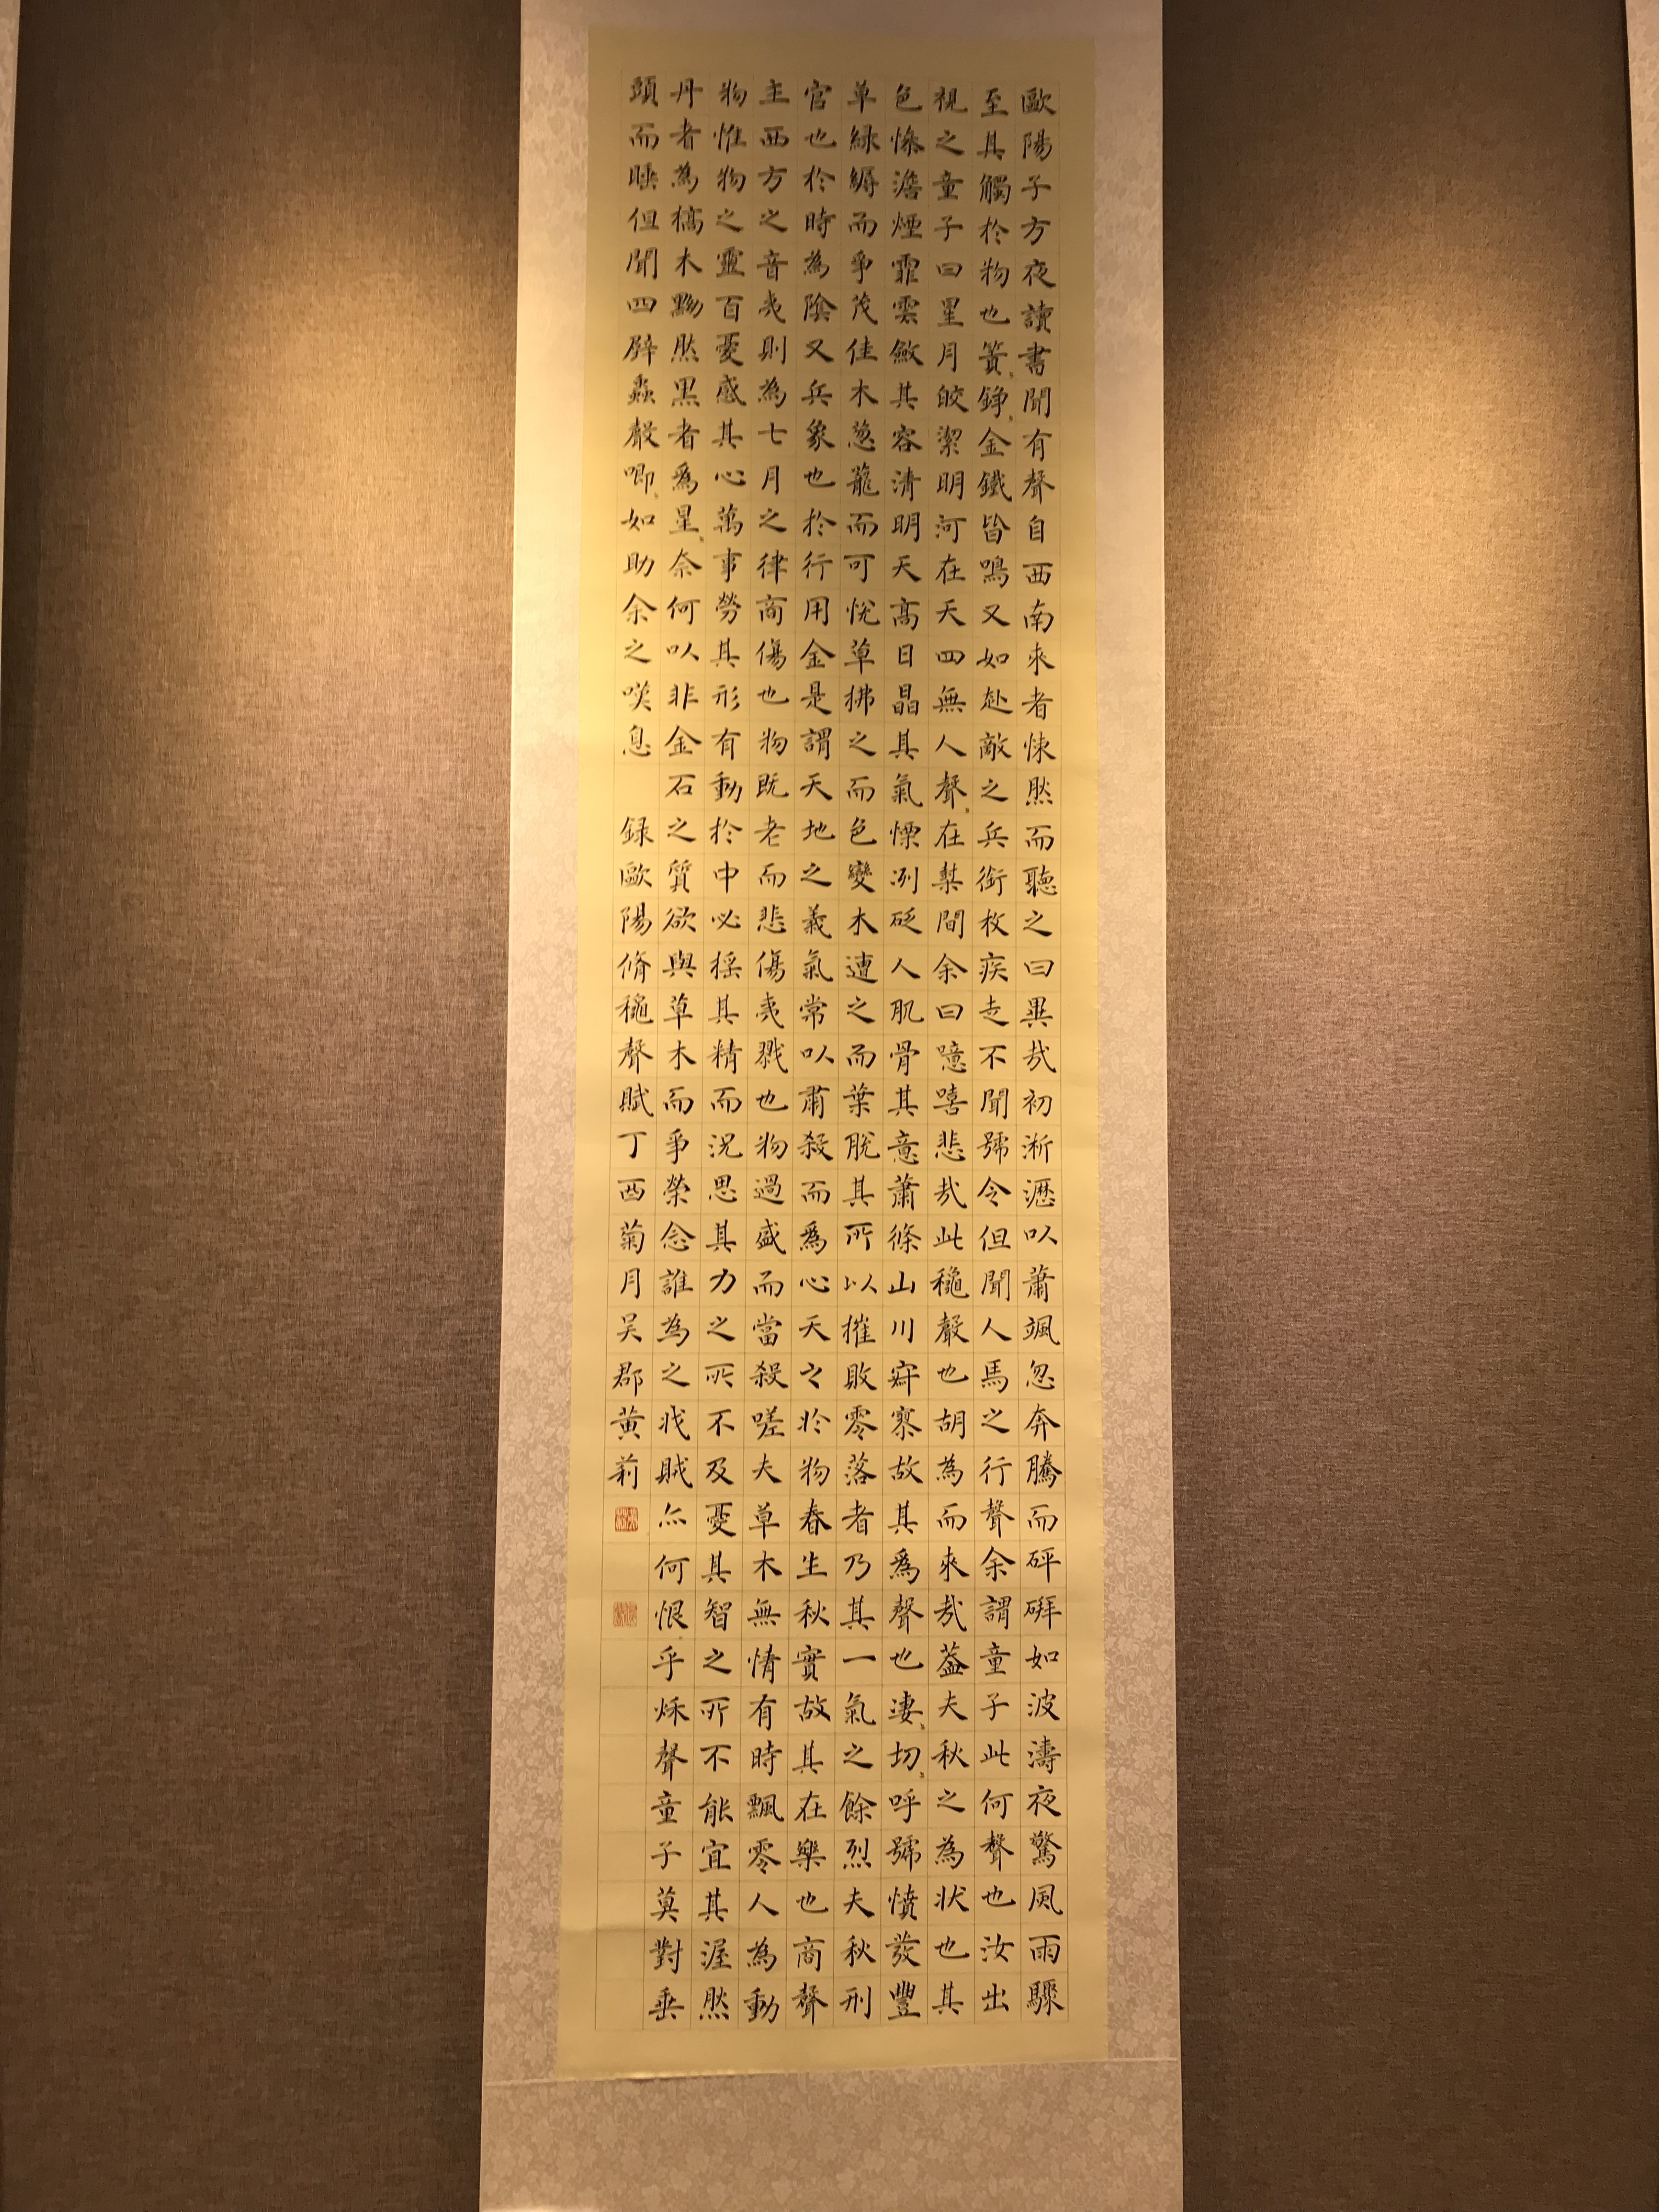 歐陽子方夜讀書聞有聲自西南來者悚然而聽之曰異哉初淅瀝以蕭颯忽奔騰而砰硑如波濤夜驚風雨驟
至其觸於物也簧〻錚〻金鐵皆鳴又如赴敵之兵銜枚疾走不聞號令但聞人馬之行聲余謂童子此何聲也汝出
視之童子曰星月皎潔明河在天四無人聲〻在樹間余曰噫嘻悲哉此龝聲也胡為而來哉葢夫秋之為狀也其
色慘澹煙霏雲斂其容清明天高日晶其氣慄冽砭人肌骨其意蕭條山川寂寥故其爲聲也凄〻切〻呼號憤發豐
草綠縟而爭茂佳木葱蘢而可悅草拂之而色變木遭之而葉脫其所以摧敗零落者乃其一氣之餘烈夫秋刑
官也於時為陰又兵象也於行用金是謂天地之義氣常以肅殺而爲心天之於物春生秋實故其在樂也商聲
主西方之音夷則為七月之律商傷也物既老而悲傷夷戮也物過盛而當殺嗟夫草木無情有時飄零人為動
物惟物之靈百憂感其心萬事勞其形有動於中必搖其精而況思其力之所不及憂其智之所不能宜其渥然
丹者為槁木黟然黑者爲星〻奈何以非金石之質欲與草木而爭榮念誰為之戕賊亦何恨乎秌聲童子莫對垂
頭而睡但聞四壁蟲聲唧〻如助余之嘆息
録歐陽脩龝聲賦丁酉菊月吴郡黄莉